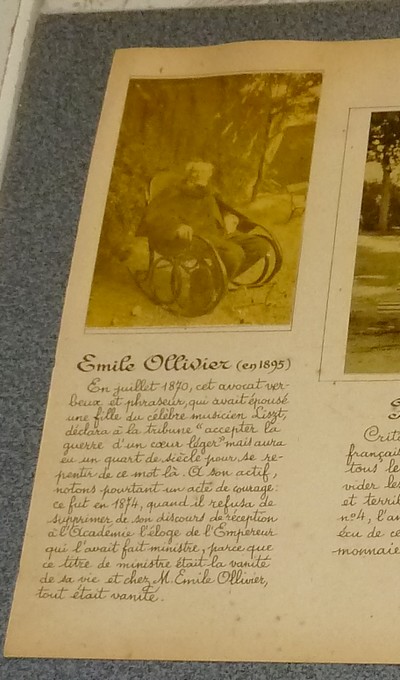 Emile Ollivier (en 1895)
En juillet 1870, cet avocat ver-
beux et phraseur, qui avait épousé
une fille du célèbre musicien Liszt,
déclara à la tribune "accepter la
guerre d'un cœur léger" mais aura
eu un quart de siècle pour se re-
pentir de ce mot là. A son actif,
notons pourtant un acte de courage:
ce fut en 1874, quand il refusa de
supprimer de son discours de réception
à l'Académie l'éloge de l'Empereur
qui l'avait fait ministre, parce que
ce titre de ministre était la vanité
de sa vie et chez M. Emile Ollivier,
tout était vanité.
Crit
français
tous le
vider les
et terri
n° 4, l'a
écu de ce
monnaie